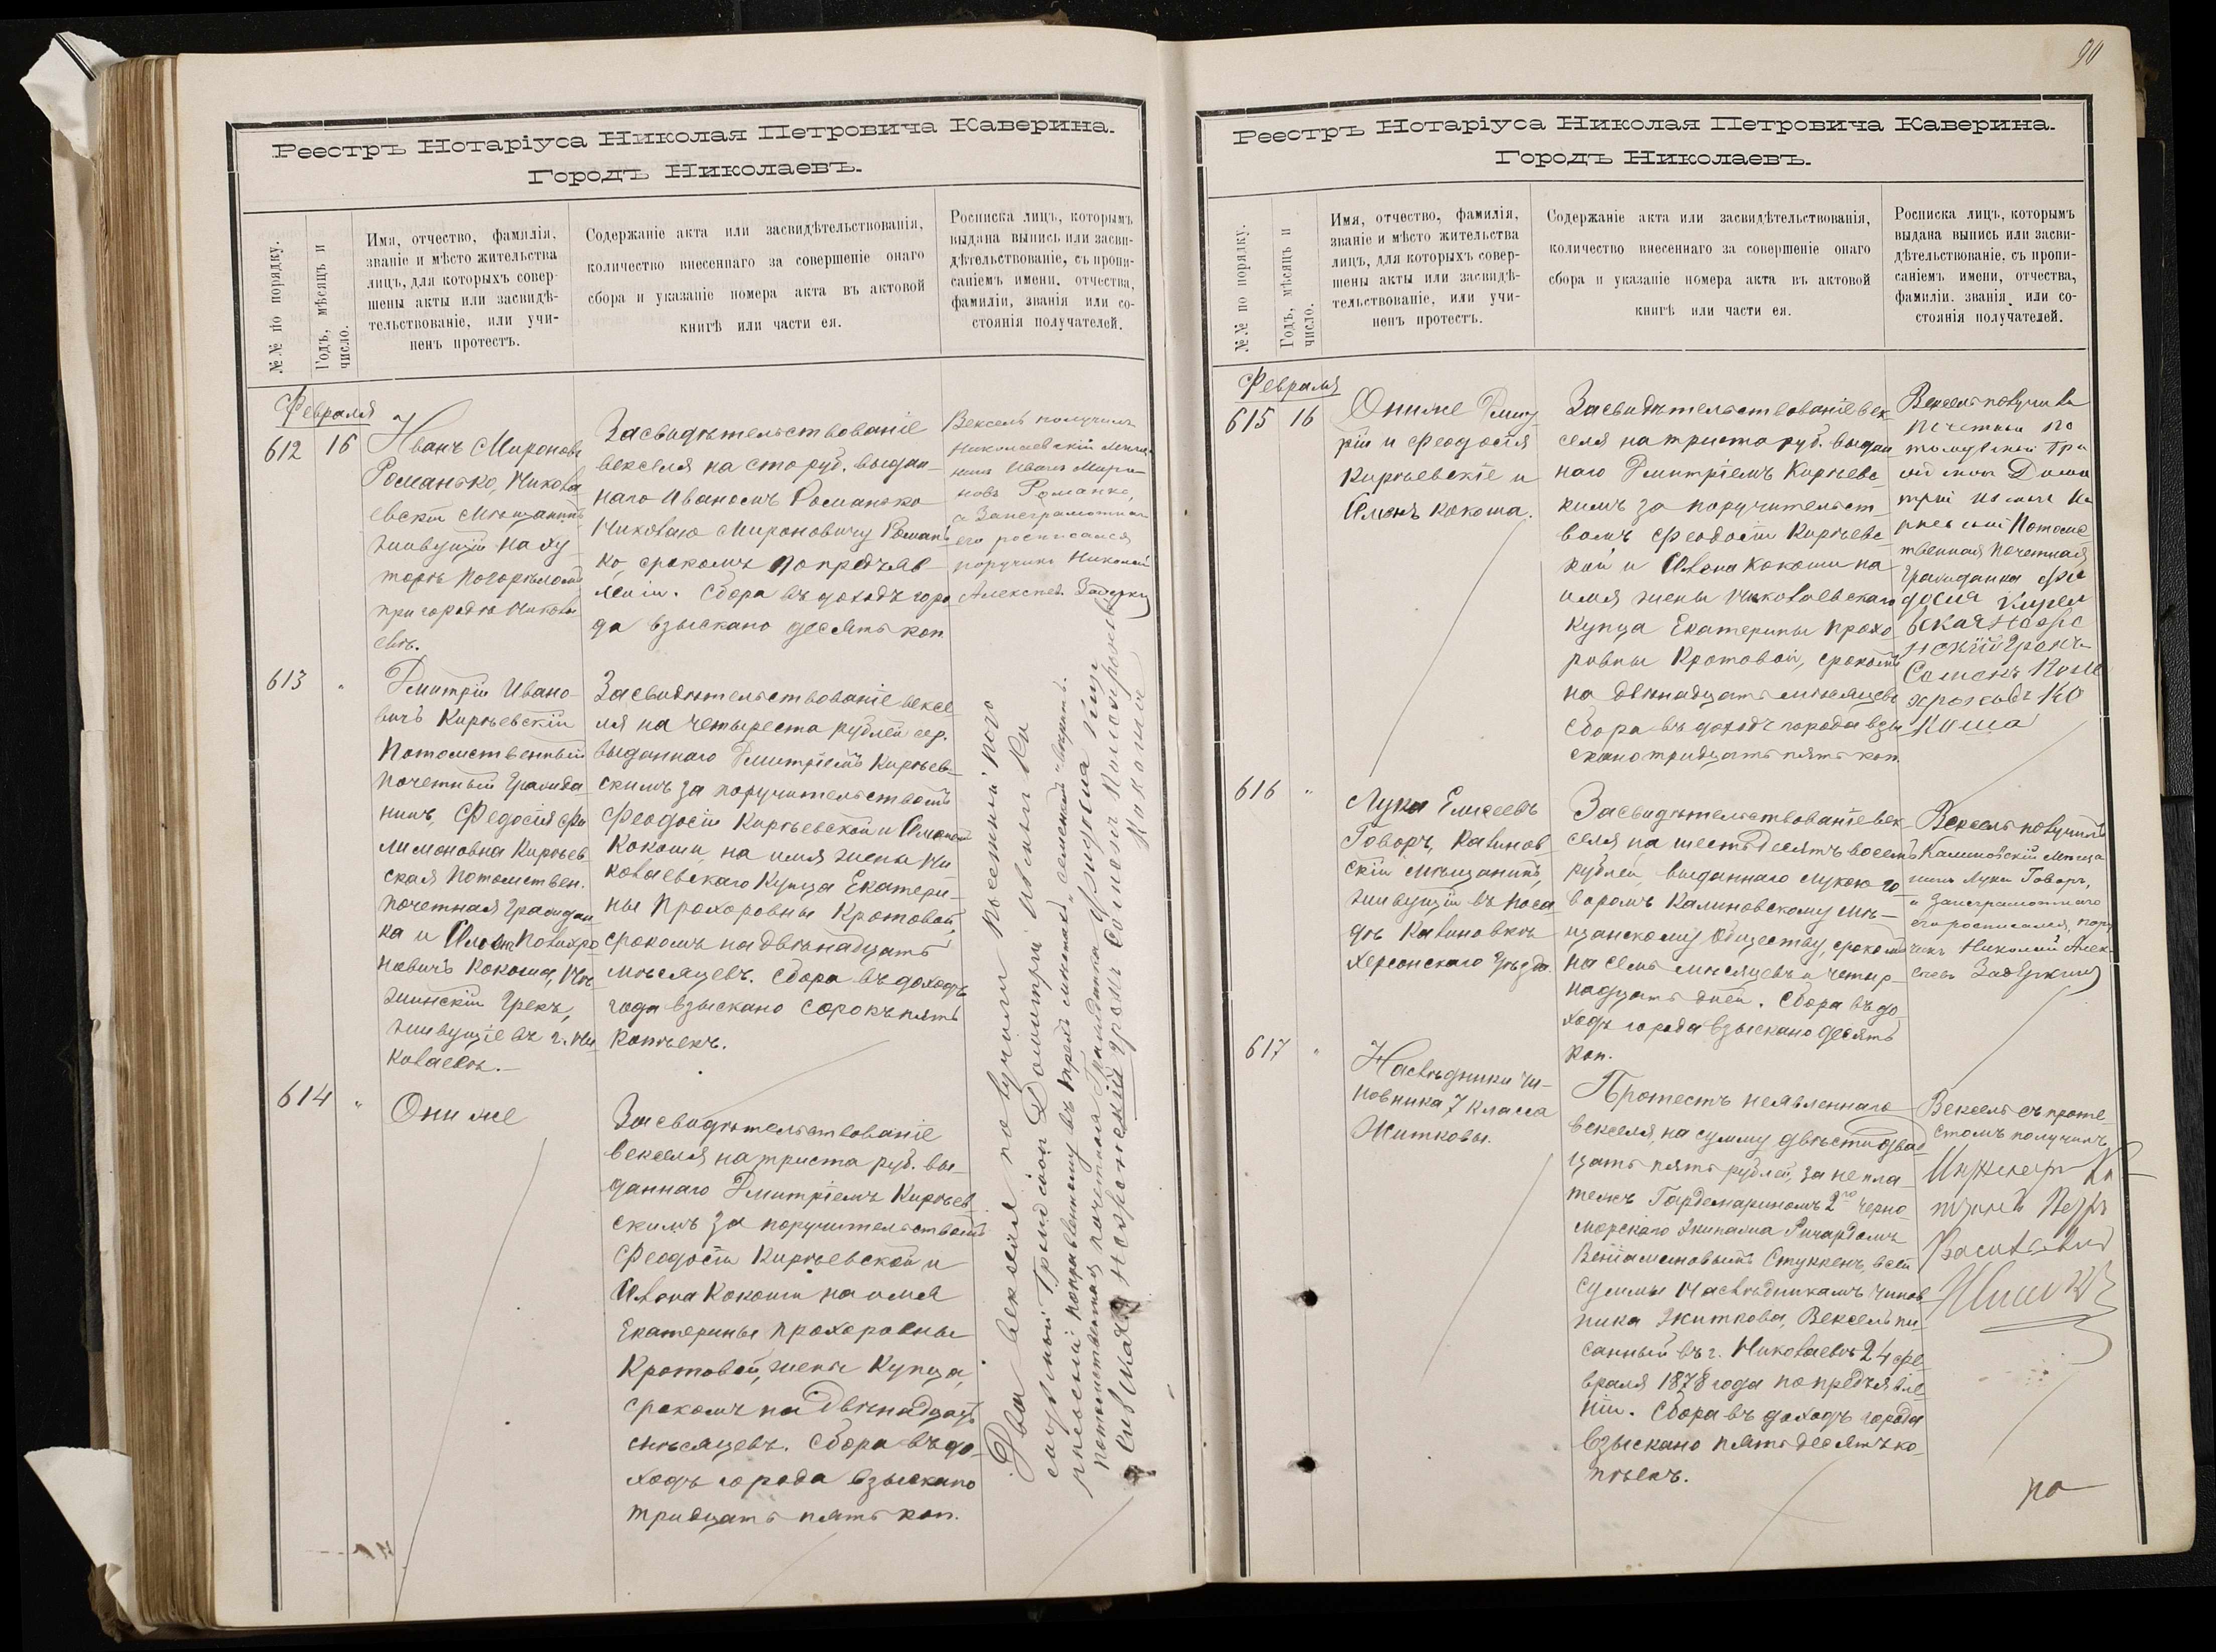 Реестръ Нотаріуса Николая Петровича Каверина.
Городъ Николаевъ.
№№ по порядку.
Годъ, мѣсяцъ и
число.
Имя, отчество, фамилія,
званіе и мѣсто жительства
лицъ, для которыхъ совер-
шены акты или засвидѣ-
тельствованіе, или учи-
ненъ протестъ.
Содержаніе акта или засвидѣтельствованія,
количество внесеннаго за совершеніе онаго
сбора и указаніе номера акта въ актовой
книгѣ или части ея.
Росписка лицъ, которымъ
выдана выпись или засви-
дѣтельствованіе, съ пропи-
саніемъ имени, отчества,
фамиліи, званія или со-
стоянія получателей.
Февраля
612 16
Иванъ Мироновъ
Романько, Никола
евскій мѣщанинъ
живущій на ху
торѣ Погорѣломъ
при городѣ Никола
евѣ.
Засвидѣтельствованіе
векселя на сто руб. выдан
наго Иваномъ Романько
Николаю Мироновичу Романь
ко, срокомъ по предъяв
леніи. Сбора въ доходъ горо
да взыскано десять коп.
Вексель получилъ
Николаевскій мѣща
нинъ Иванъ Миро
новъ Романко,
а за неграмотнаго
его росписался
поручикъ Николай
Алексѣев.
613 "
Дмитрій Ивано
вичъ Кирѣевскій
Потомственный
почетный гражда
нинъ, Федосія Фи
лимоновна Кирѣев
ская потомствен.
почетная граждан
ка и
новичъ Кокоша, Нѣ
жинскій Грекъ,
живущіе въ г. Ни
колаевѣ.
Засвидѣтельствованіе вексе
ля на четыреста рублей сер.
выданнаго Дмитріемъ Кирѣев
скимъ за поручительствомъ
Феодосіи Кирѣевской и
Кокоши, на имя жены Ни
колаевскаго Купца Екатери
ны Прохоровны Кротовой,
срокомъ на двѣнадцать
мѣсяцевъ. Сбора въ доходъ
года взыскано сорокъ пять
копѣекъ.
614 "
Они же
Засвидѣтельствованіе
векселя на триста руб. вы
даннаго Дмитріемъ Кирѣев
скимъ за поручительствомъ
Феодосіи Кирѣевской и
Кокоши на имя
Екатерины Прохоровны
Кротовой, жены Купца,
срокомъ на двѣнадцать
мѣсяцевъ. Сбора въ до
ходъ города взыскано
тридцать пять коп.
Два векселя получили
90
Реестръ Нотаріуса Николая Петровича Каверина.
Городъ Николаевъ.
№№ по порядку.
Годъ, мѣсяцъ и
число.
Имя, отчество, фамилія,
званіе и мѣсто жительства
лицъ, для которыхъ совер-
шены акты или засвидѣ-
тельствованіе, или учи-
ненъ протестъ.
Содержаніе акта или засвидѣтельствованія,
количество внесеннаго за совершеніе онаго
сбора и указаніе номера акта въ актовой
книгѣ или части ея.
Росписка лицъ, которымъ
выдана выпись или засви-
дѣтельствованіе, съ пропи-
саніемъ имени, отчества,
фамиліи. званія или со-
стоянія получателей.
Февраля
615 16
Они же Дмит
рій и Феодосія
Кирѣевскіе и
Кокоша.
Засвидѣтельствованіе век
селя на триста руб. выдан
наго Дмитріемъ Кирѣевс
кимъ за поручительст
вомъ Феодосіи Кирѣевс
кой и Кокоши на
имя жены Николаевскаго
купца Екатерины Прохо
ровны Кротовой, срокомъ
на двѣнадцать мѣсяцевъ
Сбора въ доходъ города взы
скано тридцать пять коп.
616 "
Лука Елисеевъ
Говоръ, Калинов
скій мѣщанинъ,
живущій въ поса
дѣ Калиновкѣ
Херсонскаго уѣзда.
Засвидѣтельствованіе век
селя на шестьдесятъ восемь
рублей, выданнаго Лукою Го
воромъ Калиновскому мѣ
щанскому обществу, срокомъ
на семь мѣсяцевъ и четыр
надцать дней. Сбора въ до
ходъ города взыскано десять
коп.
Вексель получилъ
Калиновскій мѣща
нинъ Лука Говоръ,
а за неграмотнаго
его росписался, пору
чикъ Николай Алек
сѣевъ
617 "
Наслѣдники чи
новника 7 класса
Житковы.
Протестъ неявленнаго
векселя, на сумму двѣсти двад
цать пять рублей, за непла
тежъ Гардемариномъ 2го Черно
морскаго Экипажа Ричардомъ
Веніаминовымъ Стуккенъ, всей
суммы наслѣдникамъ чинов
ника Житкова, Вексель пи
санный въ г. Николаевѣ 24 фе
враля 1878 года по предъявле
ніи. Сбора въ доходъ города
взыскано пятьдесятъ ко
пѣекъ.
Вексель съ проте
стомъ получилъ
по